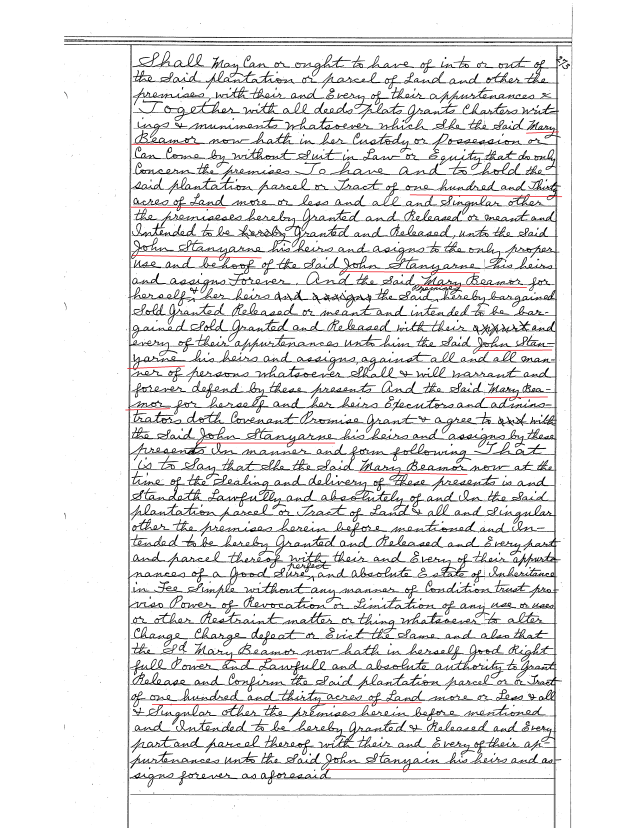 275
Shall May Can or ought to have of in to or out of
the Said plantation or parcel of Land and other the
premises with their and Every of their appurtenances &
Together with all deeds plats Grants Charters writ-
ings & muniments whatsoever which She the Said Mary
Beamor now hath in her Custody or Possession or
Can Come by without Suit in Law or Equity that do only
Concern the premises To have and to hold the
said plantation parcel or Tract of one hundred and Thirty
acres of Land more or less and all and Singular other
the premisess hereby Granted and Released or meant and
Intended to be hereby Granted and Released, unto the Said
John Stanyarne his heirs and asigns to the only proper
use and behoof of the Said John Stanyarne his heirs
and assigns Forever. And the Said Mary Beamor for
herself & her heirs and assigns the Said premises hereby bargained
Sold Granted Released or meant and intended to be bar-
gained Sold Granted and Released with their appurt and
every of their appurtenances unto him the Said John Stan-
yarne his heirs and assigns, against all and all man-
ner of persons whatsoever Shall & will warrant and
forever defend by these presents And the Said Mary Bea-
mor for herself and her heirs Executors and adminis-
trators doth Covenant Promise Grant & agree to and with
the Said John Stanyarne his heirs and assigns by these
presends In manner and form following That
is to Say that She the Said Mary Beamor now at the
time of the Sealing and delivery of These presents is and
Standeth Lawfully and absolutely of and In the Said
plantation parcel or Tract of Land & all and Singular
other the premises herein before mentioned and In-
tended to be hereby Granted and Released and Every part
and parcel thereof with their and Every of their appurte-
nances of a Good Sure perfect and absolute Estate of Inheritance
in Fee Simple without any manner of Condition trust pro-
viso Power of Revocation or Limitation of any use or uses
or other Restraint matter or thing whatsoever to alter
Change Charge defeat or Evict the Same and also that
the Sd Mary Beamor now hath in herself Good Right
full Power And Lawfull and absolute authority to Grant
Release and Confirm the Said plantation parcel or or Tract
of one hundred and thirty acres of Land more or Less & all
& Singular other the premises herein before mentioned
and Intended to be hereby Granted & Released and Every
part and parcel thereof with their and Every of their ap-
purtenances unto the Said John Stanyain his heirs and as-
signs forever as aforesaid